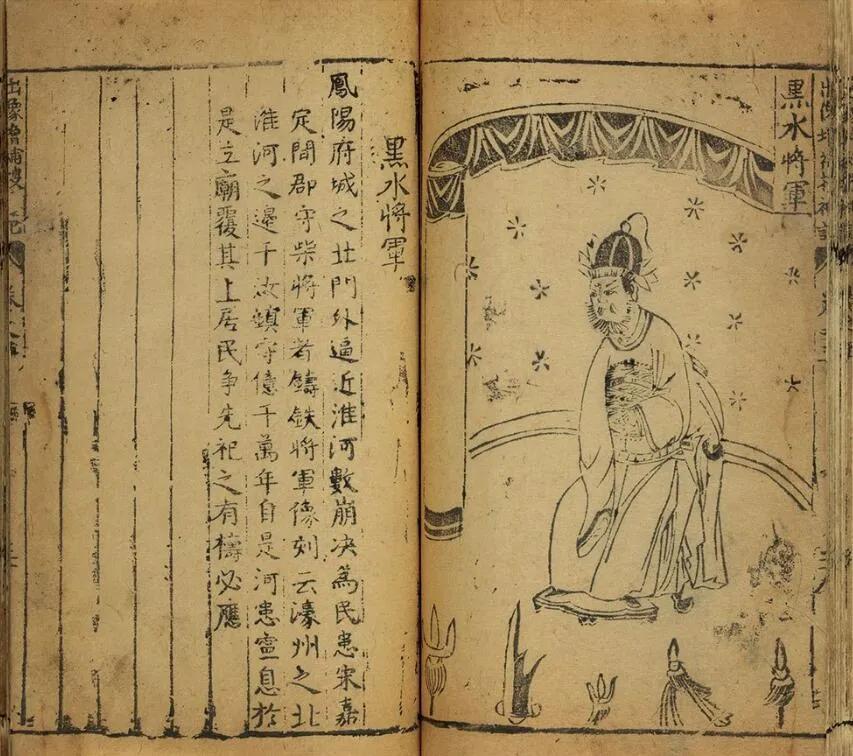 黑水將軍
黑水將軍
鳳陽府城之北門外逼近淮河數崩决為民患宋嘉
定間郡守柴將軍者鑄鉄將軍像刻云濠州之北
淮河之邊千汝鎮守億千萬年自是河患寧息於
是立廟覆其上居民争先祀之有禱必應